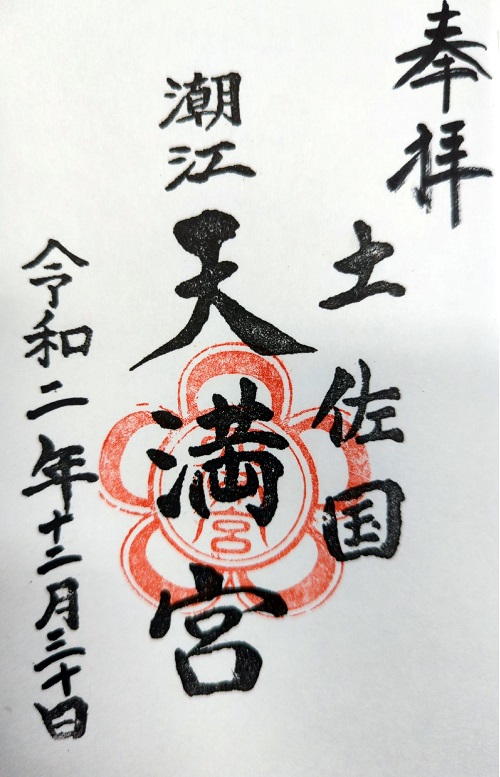 奉拝
土佐国
潮江
天満宮
令和二年十二月三十日